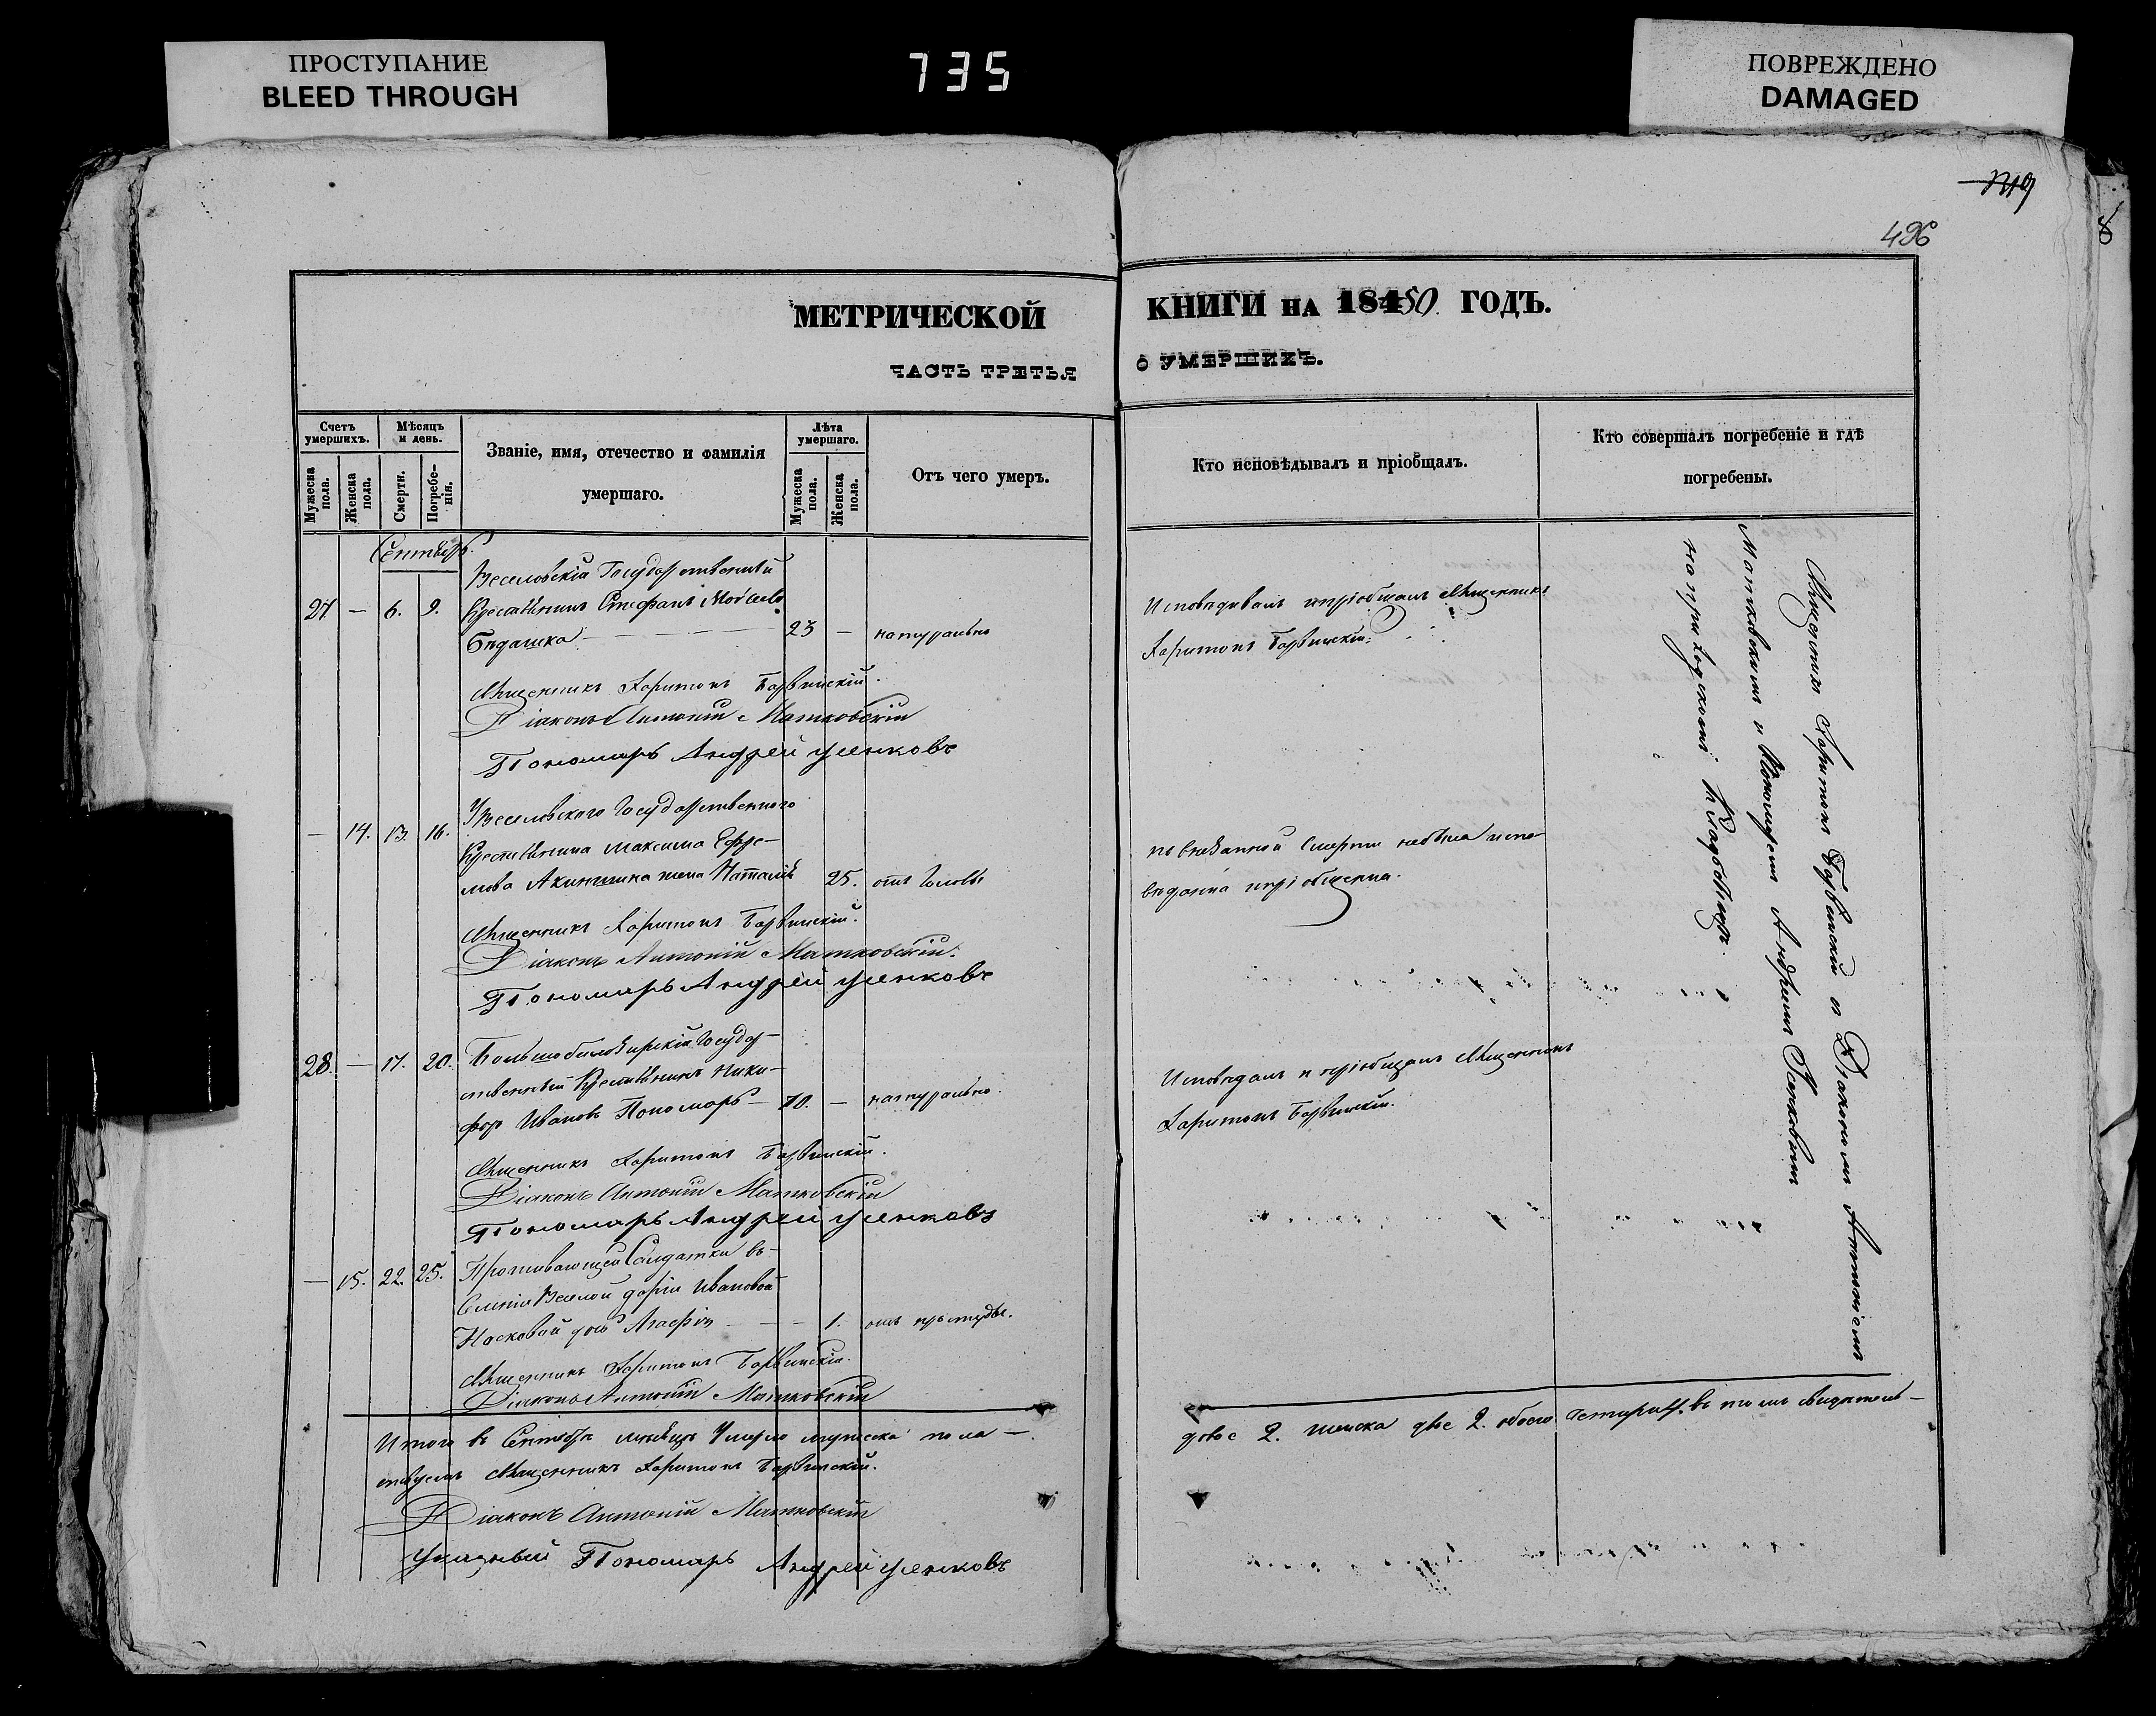 ПРОСТУПАНИЕ
BLEED THROUGH
735
ПОВРЕЖДЕНО
DAMAGED
496
МЕТРИЧЕСКОЙ
ЧАСТЬ ТРЕТЬЯ
КНИГИ НА 18450 ГОДЪ.
О УМЕРШИХЪ.
Счетъ умершихъ.
Мѣсяцъ и день.
Званіе, имя, отечество и фамилія умершаго.
Лѣта умершаго.
Отъ чего умеръ.
Мужеска пола.
Женска пола.
Смерти.
Погребенія.
Мужеска пола.
Женска пола.
Кто исповѣдывалъ и пріобщалъ.
Кто совершалъ погребеніе и гдѣ погребены.
Сентябрь.
Веселовскій Государственный
27 — 6. 9. Крестьянинъ Стефанъ
23 — натурально
Исповѣдывалъ и пріобщалъ Священникъ
Харитонъ Барвинскій.
Священникъ Харитонъ Барвинскій.
Діаконъ Антоній Матковскій
Пономарь Андрей Усенковъ
Веселовского Государственного
— 14. 13. 16. Крестьянина Максима Ефре-
мова Акименка жена Наталія 25. отъ головы
по внезапной смерти небыла испо-
вѣдана и пріобщена.
Священникъ Харитонъ Барвинскій.
Діаконъ Антоній Матковскій.
Пономарь Андрей Усенковъ
28. — 17. 20. Большобилозирскій Государ-
ственный Крестьянинъ Ники-
форъ Ивановъ Пономарь — 70. — натурально.
Исповѣдалъ и пріобщалъ Священникъ
Харитонъ Барвинскій.
Священникъ Харитонъ Барвинскій.
Діаконъ Антоній Матковскій
Пономарь Андрей Усенковъ
— 15. 22. 25. Проживающей Солдатки въ
Селеніи Веселой Даріи Ивановой
Носковой дочь Агафія — — 1. отъ простуды.
Священникъ Харитонъ Барвинскій.
Діаконъ Антоній Матковскій
Священникъ Харитонъ Барвинскій съ Діакономъ Антоніемъ
Матковскимъ и Пономаремъ Андреемъ Усенковымъ
на приходскомъ кладбищѣ.
Итого въ Сентябрѣ мѣсяцѣ умерло мужеска пола —
двое 2. женска двѣ 2. обоего четыри 4. въ томъ свидѣтель-
ствуемъ Священникъ Харитонъ Барвинскій.
Діаконъ Антоній Матковскій
Указный Пономарь Андрей Усенковъ